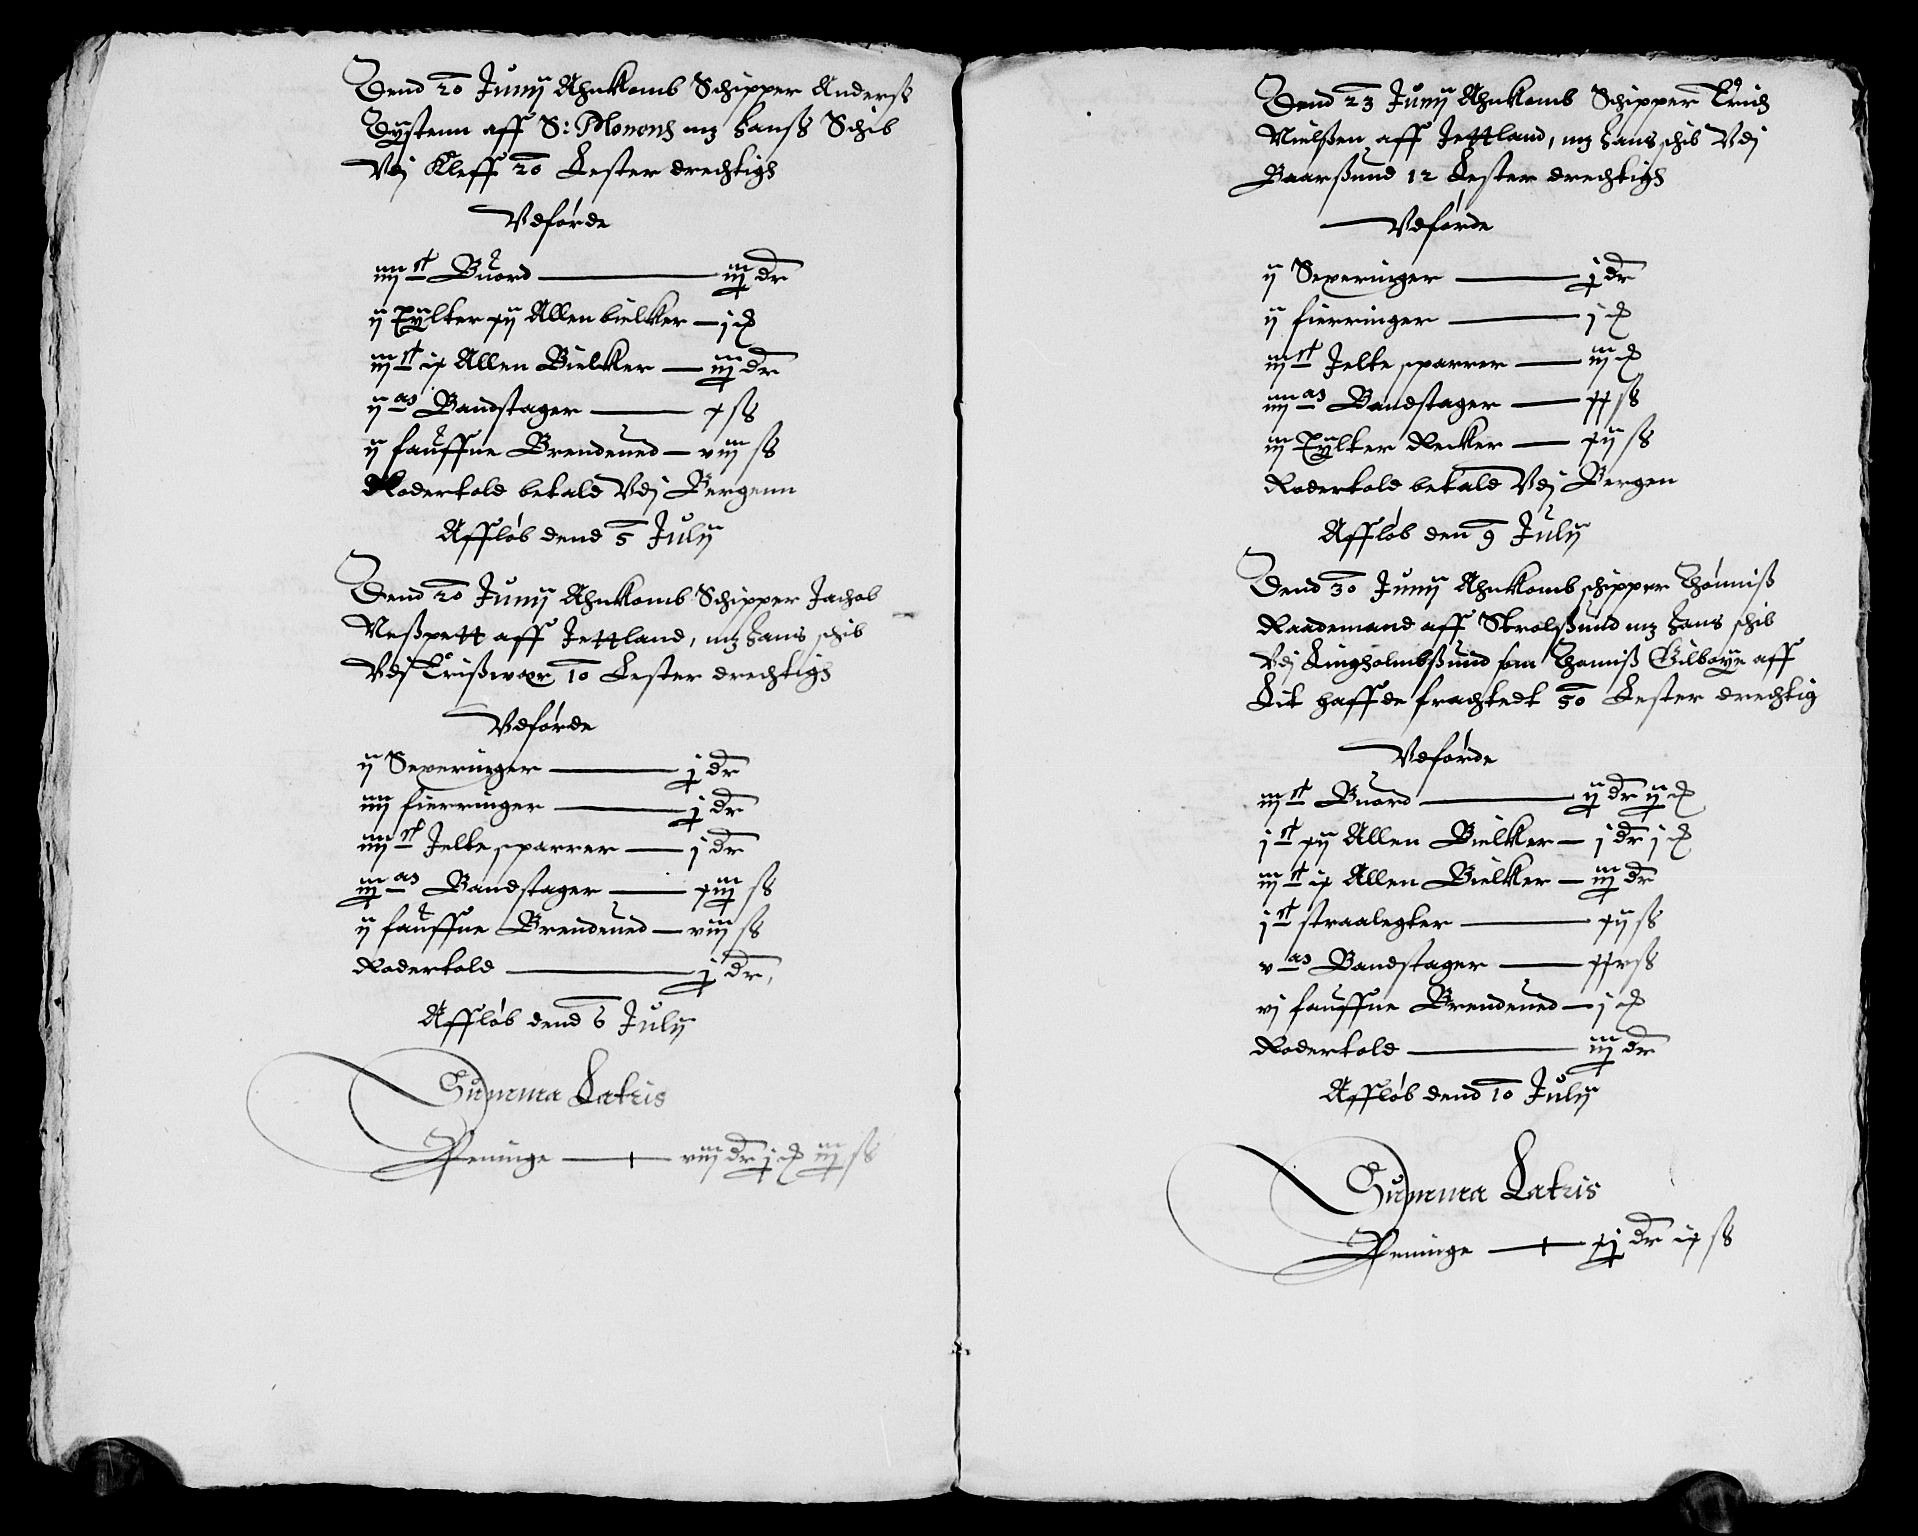 Dend 20 Junij Ahnkomb Schipper Anderss
Dystenn aff S: Monons mz hanss Schib
Vdj Kleff 20 Lester drechtigh
Vdførde
iiij st Buord — iij dr
ij Tylter xij Allen bielker — j ₰
iij st ix Allen Bielker — iij dr
ij as Bandstager — x ss
ij fauffne Brendeued — viij ss
Rodertold betald Vdj Bergenn
Affløb dend 5 Julij
Dend 20 Junij Ahnkomb Schipper Jachob
Nesspett aff Jettland, mz hans schib
Vdj 10 Lester drechtigh
Vdførde
ij Sexeringer — j dr
iiij fierringer — j dr
iiij st Jelte sparrer — j dr
iij as Bandstager — xiij ss
ij fauffne Brendeued — viij ss
Rodertold — j dr,
Affløb dend 6 Julij
Summa Lateris
Peninge — viij dr j ₰ iij ss
Dend 23 Junij Ahnkomb Schipper Erich
Nielssen aff Jettland, mz hans schib Vdj
Baarssund 12 Lester drechtigh
Vdførde
ij Sexeringer — j dr
ij fierringer — j ₰
iij st Jelte sparrer — iij ₰
iiij as Bandstager — xx ss
iij Tylter Recker — xij ss
Rodertold betald Vdj Bergen
Affløb den 9 Julij
Dend 30 Junij Ahnkomb schipper Thomiss
Raademand aff Strolssund mz hans schib
Vdj Lingholmbssund som Thomiss Gilboye aff
Lit haffde frachtedt 50 Lester drechtig
Vdførde
iij st Buord — ij dr ij ₰
j st xij Allen Bielker — j dr j ₰
iij st ix Allen Bielker — iij dr
j st straalegter — xij ss
v as Bandstager — xxv ss
vj fauffne Brendeued — j ₰
Rodertold — iij dr
Affløb dend 10 Julij
Summa Lateris
Peninge — xj dr ix ss